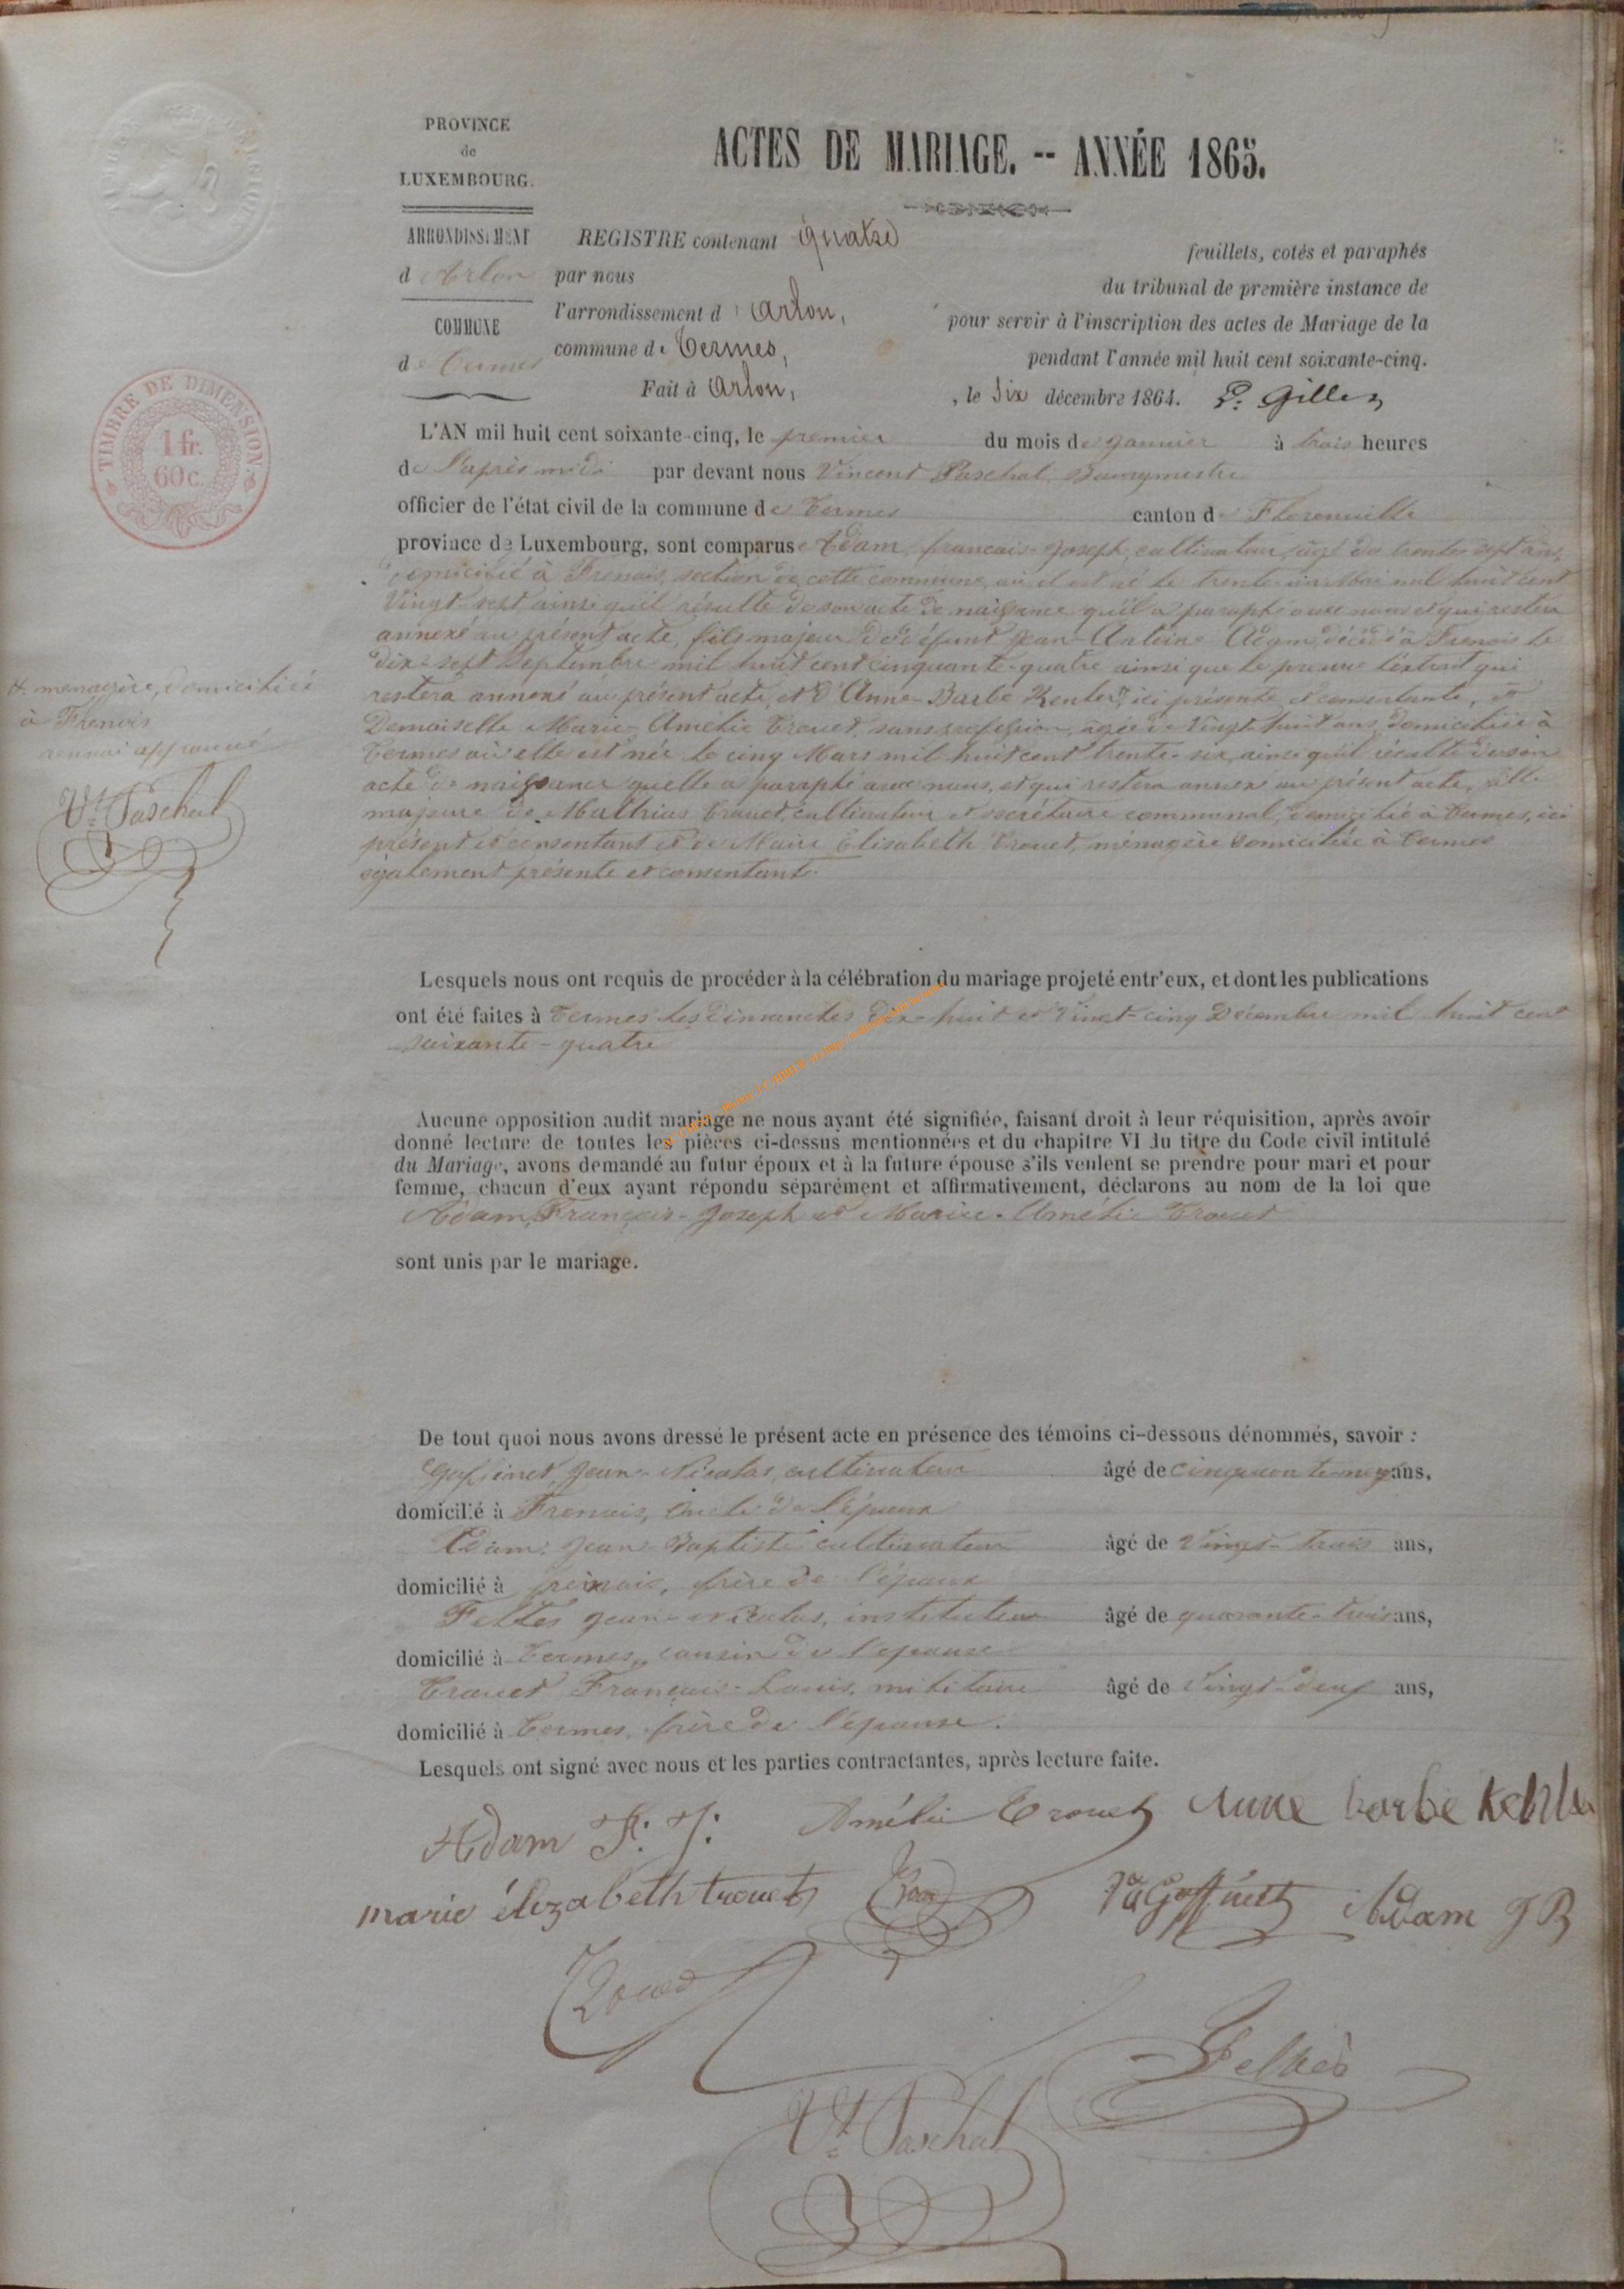 PROVINCE
de
LUXEMBOURG.
ACTES DE MARIAGE. -- ANNÉE 1865.
ARRONDISSEMENT
d'Arlon
COMMUNE
de Termes
REGISTRE contenant quatre feuillets, cotés et paraphés
par nous du tribunal de première instance de
l'arrondissement d'Arlon, pour servir à l'inscription des actes de Mariage de la
commune de Termes, pendant l'année mil huit cent soixante-cinq.
Fait à Arlon, , le six décembre 1864.
TIMBRE DE DIMENSION.
1 fr.
60 c.
L'AN mil huit cent soixante-cinq, le premier du mois de Janvier à trois heures
de l'après midi par devant nous Vincent Paschal, Bourgmestre
officier de l'état civil de la commune de Termes canton de Florenville
province de Luxembourg, sont comparus Adam, francois-Joseph, cultivateur, âgé de trente sept ans,
domicilié à Frenois, section de cette commune, où il est né le trente un Mai mil huit cent
Vingt-sept ainsi qu'il résulte de son acte de naissance qu'il a paraphé avec nous et qui restera
annexé au présent acte, fils majeur de défunt Jean-Antoine Adam, décédé à Frenois le
dix-sept Septembre mil huit cent cinquante-quatre ainsi que le prouve l'extrait qui
restera annexé au présent acte, et d'Anne-Barbe ici présente et consentante, et
Demoiselle Marie-Amélie Trouet, sans profession, âgée de Vingt-huit ans, domiciliée à
Termes où elle est née le cinq Mars mil huit cent trente-six, ainsi qu'il résulte de son
acte de naissance qu'elle a paraphé avec nous, et qui restera annexé au présent acte, fille
majeure de Mathias Trouet, cultivateur et secrétaire communal, domicilié à Termes, ici
présent et consentant et de Marie Elisabeth Trouet, ménagère domiciliée à Termes
également présente et consentante.
+. menagère, domiciliée
à Frenois
renvoi approuvé
Vt. Paschal
Lesquels nous ont requis de procéder à la célébration du mariage projeté entr'eux, et dont les publications
ont été faites à Termes les Dimanches dix-huit et Vingt-cinq Décembre mil huit cent
soixante-quatre
Aucune opposition audit mariage ne nous ayant été signifiée, faisant droit à leur réquisition, après avoir
donné lecture de toutes les pièces ci-dessus mentionnées et du chapitre VI du titre du Code civil intitulé
du Mariage, avons demandé au futur époux et à la future épouse s'ils veulent se prendre pour mari et pour
femme, chacun d'eux ayant répondu séparément et affirmativement, déclarons au nom de la loi que
Adam, François-Joseph et Marie-Amélie Trouet
sont unis par le mariage.
De tout quoi nous avons dressé le présent acte en présence des témoins ci-dessous dénommés, savoir :
Goffinet, Jean-Nicolas, cultivateur âgé de ans,
domicilié à Frenois, oncle de l'époux
Adam, Jean-Baptiste cultivateur âgé de Vingt-trois ans,
domicilié à frenois, frère de l'époux
Feltes Jean-Nicolas, instituteur âgé de quarante-trois ans,
domicilié à Termes, cousin de l'épouse
Trouet François-Louis, militaire âgé de Vingt-deux ans,
domicilié à Termes, frère de l'épouse.
Lesquels ont signé avec nous et les parties contractantes, après lecture faite.
Adam F: J: Amélie Trouet Anne barbe
marie élizabeth trouet Goffinet Adam J B
Trouet
Feltès
Vt. Paschal